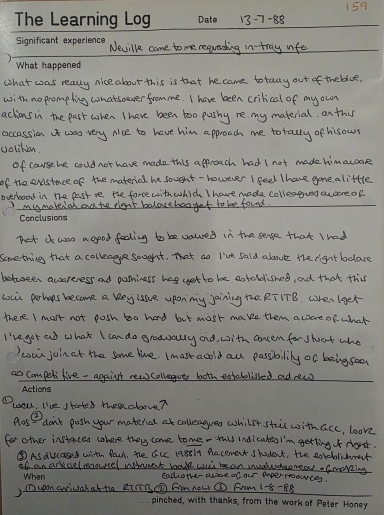 159
The Learning Log Date 13-7-88
Significant experience Neville came to me requesting in-tray info.
What happened
What was really nice about this is that he came totally out of the blue,
with no prompting whatsoever from me. I have been critical of my own
actions in the past when I have been too pushy re. my material. On this
occassion it was very nice to have him approach me totally of his own
volition.
Of course he could not have made this approach had I not made him aware
of the existence of the material he sought - however I feel I have gone a little
overboard in the past re the force with which I have made colleagues aware of
my material and the right balance has yet to be found.
Conclusions
That it was a good feeling to be valued in the sense that I had
something that a colleague sought. That as I've said above the right balance
between awareness and pushiness has yet to be established, and that this
will perhaps become a key issue upon my joining the RTITB. When I get
there I must not push too hard but must make them aware of what
I've got and what I can do gradually and, with concern for those who
will join at the same time. I must avoid all possibility of being seen
as competitive - against new colleagues both established and new
Actions
① Well, I've stated these above ↗
Plus ② don't push your material at colleagues whilst still with GCC, look
for other instances where they come to me - this indicates I'm getting it right.
③ As discussed with Paul, the GCC 1988/9 Placement student, the establishment
of an article/research instrument bank will be an involved means of making
When each other aware of our paper resources.
① upon arrival at the RTITB ② From now ③ From 1-8-88
....pinched, with thanks, from the work of Peter Honey